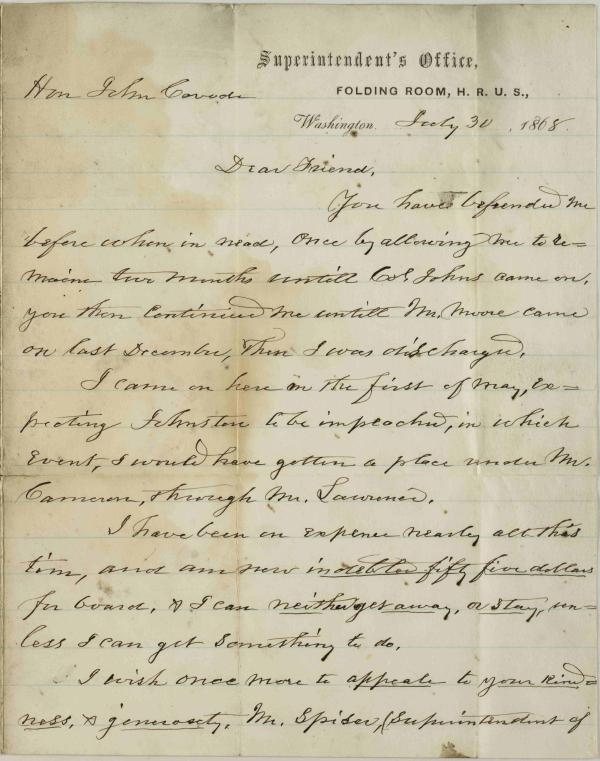 Superintendent's Office,
Hon John Covode
FOLDING ROOM, H. R. U. S.,
Washington. July 30, 1868.
Dear Friend,
You have befriended me
before when in need, once by allowing me to re=
maine two months untill Col Johns came on.
you then continued me untill Mr. Moore came
on last December, Then I was discharged.
I came on here in the first of May, ex=
pecting Johnston to be impeached, in which
event, I would have gotten a place under Mr.
Cameron, through Mr. Lawrence.
I have been on expence nearly all this
time, and am now indebted fifty five dollars
for board. & I can neither get away, or stay, un=
less I can get something to do.
I wish once more to appeale to your kind=
ness, & generosety. Mr. Spiser, (Superintendent of